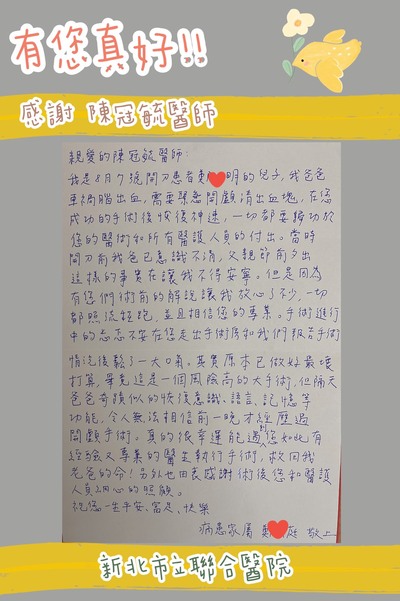 有您真好!!
感謝 陳冠毓醫師
親愛的陳冠毓醫師:
我是8月7號開刀患者 明的兒子,我爸爸
車禍腦出血,需要緊急開顱清出血塊,在您
成功的手術後恢復神速,一切都要歸功於
您的醫術和所有醫護人員的付出。當時
開刀前我爸已意識不清,父親節前夕出
這樣的事實在讓我不得安寧。但是因為
有您們術前的解說讓我放心了不少,一切
都照流程跑,並且相信您的專業。手術進行
中的忐忑不安在您走出手術房和我們報告手術
情況後鬆了一大口氣。其實原本已做好最壞
打算,畢竟這是一個風險高的大手術,但隔天
爸爸奇蹟似的恢復意識、語言、記憶等
功能,令人無法相信前一晚才經歷過
開顱手術。真的很幸運能遇到您如此有
經驗又專業的醫生執行手術,救回我
老爸的命!另外也由衷感謝術後您和醫護
人員用心的照顧。
祝您一生平安、富足、快樂
病患家屬 庭 敬上
新北市立聯合醫院